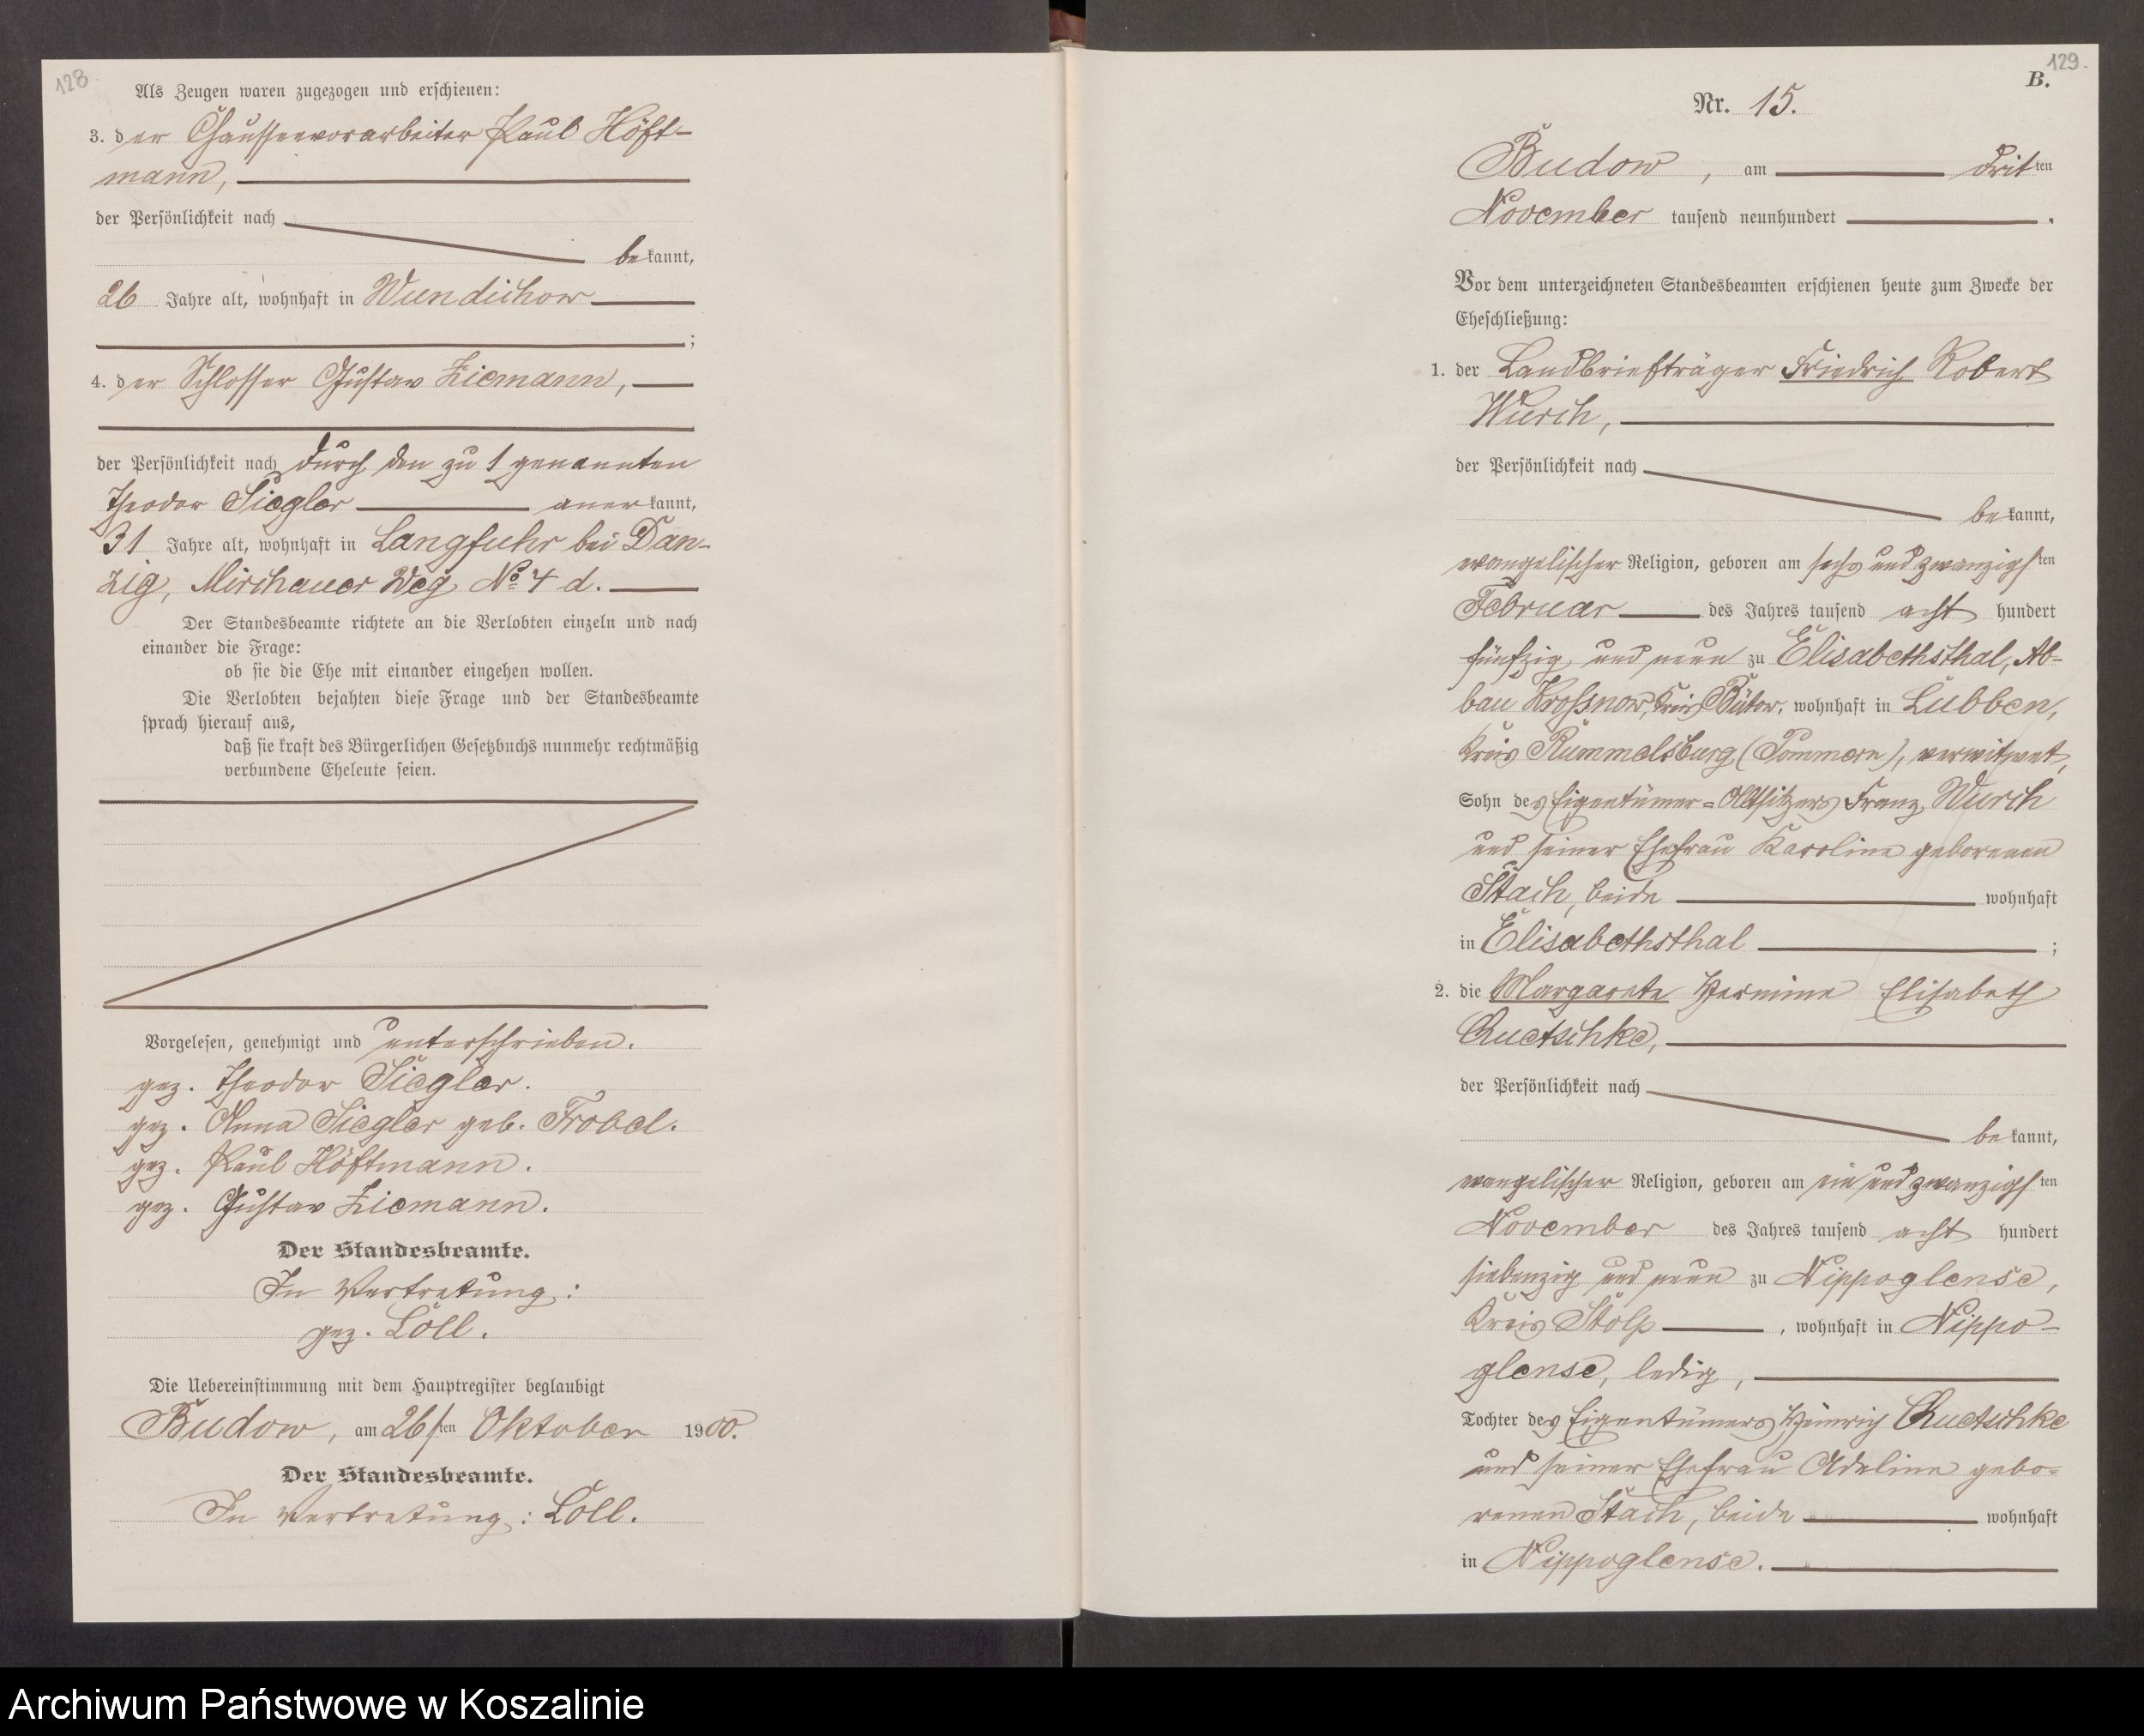 128
Als Zeugen waren zugezogen und erschienen:
3. der Chausseevorarbeiter Paul Höft-
mann,
der Persönlichkeit nach
be kannt,
26 Jahre alt, wohnhaft in Wundichow
;
4. der Schlosser Gustav Ziemann,
der Persönlichkeit nach durch den zu 1 genannten
Theodor Siegler aner kannt,
31 Jahre alt, wohnhaft in Langfuhr bei Dan-
zig, Mirchauer Weg No 4 d.
Der Standesbeamte richtete an die Verlobten einzeln und nach
einander die Frage:
ob sie die Ehe mit einander eingehen wollen.
Die Verlobten bejahten diese Frage und der Standesbeamte
sprach hierauf aus,
daß sie kraft des Bürgerlichen Gesetzbuchs nunmehr rechtmäßig
verbundene Eheleute seien.
Vorgelesen, genehmigt und unterschrieben.
gez. Theodor Siegler.
gez. Anna Siegler geb. Frobel.
gez. Paul Höftmann.
gez. Gustav Ziemann.
Der Standesbeamte.
In Vertretung:
gez. Löll.
Die Uebereinstimmung mit dem Hauptregister beglaubigt
Budow, am 26/ten Oktober 1900.
Der Standesbeamte.
In Vertretung: Löll.
129
B.
Nr. 15.
Budow, am dritten
November tausend neunhundert .
Vor dem unterzeichneten Standesbeamten erschienen heute zum Zwecke der
Eheschließung:
1. der Landbriefträger Friedrich Robert
Wurch,
der Persönlichkeit nach
be kannt,
evangelischer Religion, geboren am sechs und zwanzigsten
Februar des Jahres tausend acht hundert
fünfzig und neun zu Elisabethsthal, Ab-
bau Krossnow, Kreis Bütow, wohnhaft in Lubben,
Kreis Rummelsburg (Pommern), verwitwet,
Sohn des Eigentümer-Altsitzers Franz Wurch
und seiner Ehefrau Karoline geborenen
Stach, beide wohnhaft
in Elisabethsthal ;
2. die Margarete Hermine Elisabeth
Quetschke,
der Persönlichkeit nach
be kannt,
evangelischer Religion, geboren am ein und zwanzigsten
November des Jahres tausend acht hundert
siebenzig und neun zu Nippoglense,
Kreis Stolp , wohnhaft in Nippo-
glense, ledig,
Tochter des Eigentümers Heinrich Quetschke
und seiner Ehefrau Adeline gebo-
renen Stach, beide wohnhaft
in Nippoglense.
Archiwum Państwowe w Koszalinie